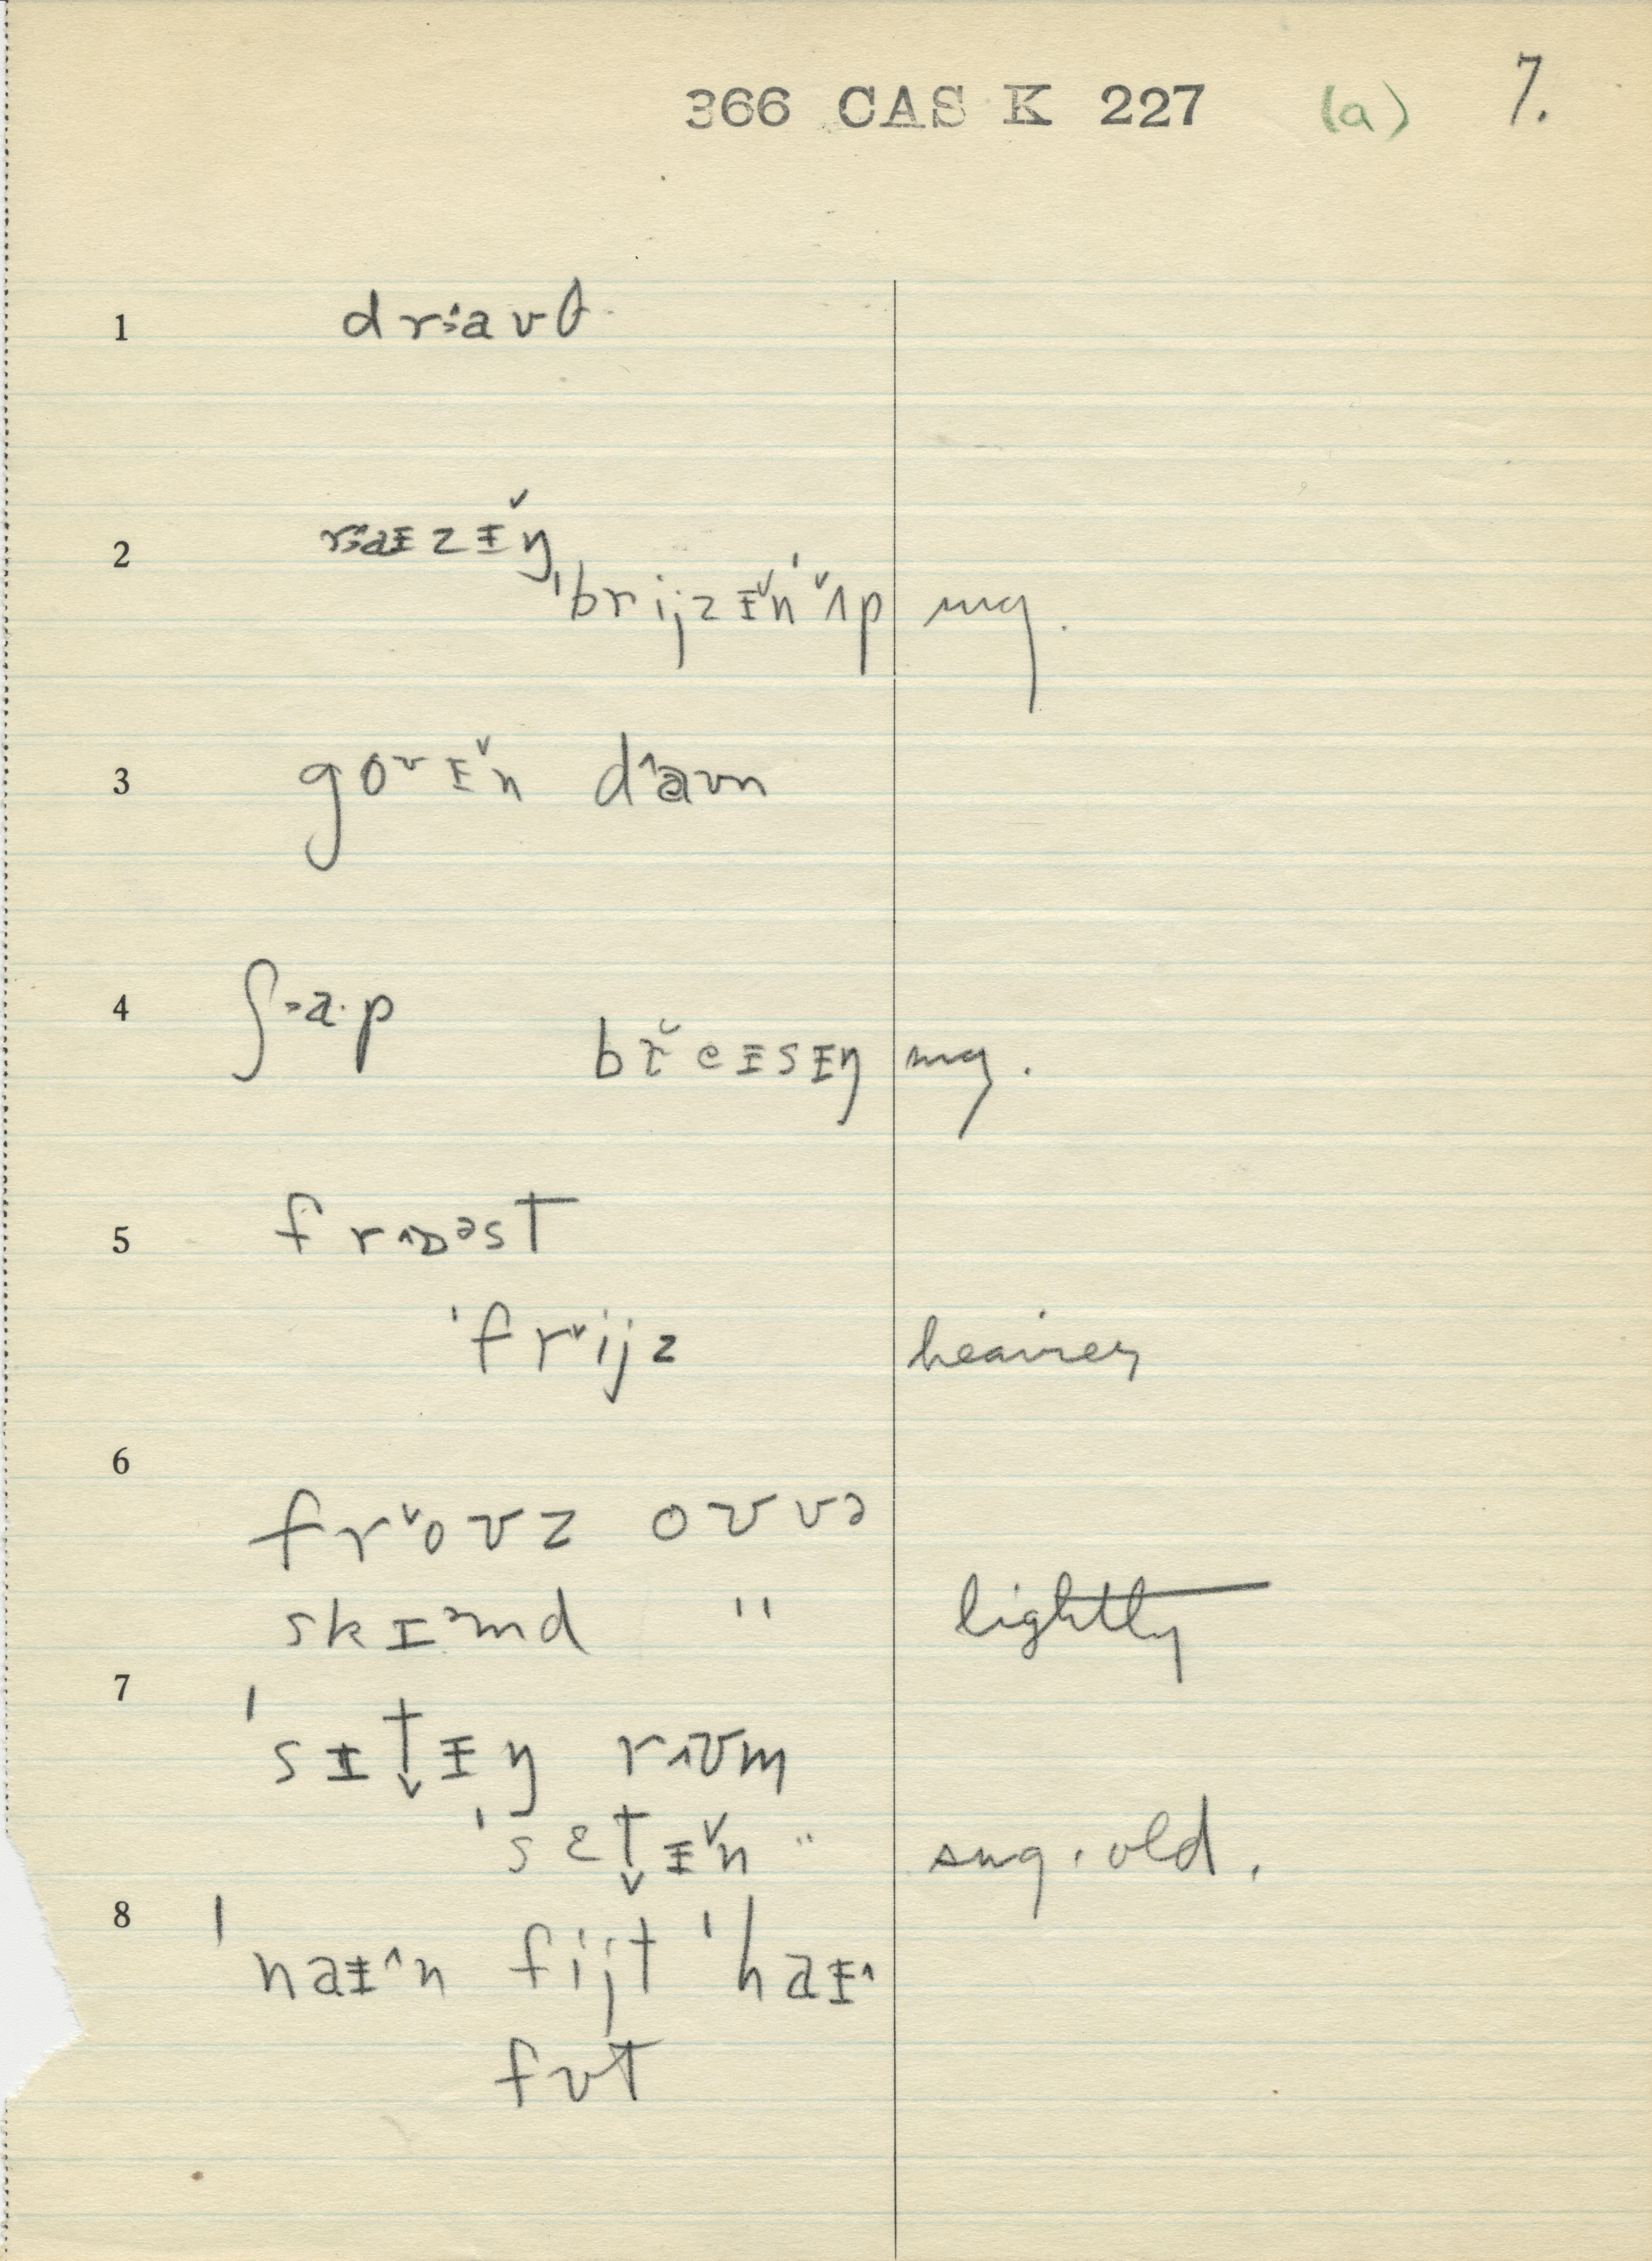 366 CAS K 227 (a) 7.
1 drɜ˄aʊθ
2 rɜ˄aɪzɪ˅ŋ
ˈbrijzɪ˅nˈ˅ʌp sug.
3 goʊɪ˅n d˄aʊn
4 ʃ˃a·p br˅eɪsɪŋ sug.
5 fr˄ɒəst
ˈfr˅ijz heavier
6
fr˅oʊz oʊvə
skɪ˃md " lightly
7
ˈsɪt̬ɪŋ r˄ʊm
ˈsɛt̬ɪ˅n " sug. old.
8
ˈnaɪ˄n fijt ˈhaɪ˄
fʊt